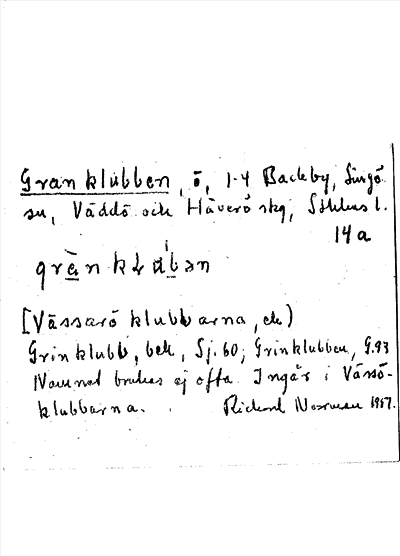 Granklubben, ö, 1-4 Backby, Singö
sn, Väddö och Häverö skg, Sthlms l.
14a
grànklúb̀ən
[Vässarö klubbarna, ek)
Grinklubb, bek, Sj. 60; Grinklubben, G.93
Namnet brukas ej ofta. Ingår i Vässö-
klubbarna. Rickard Norrman 1957.